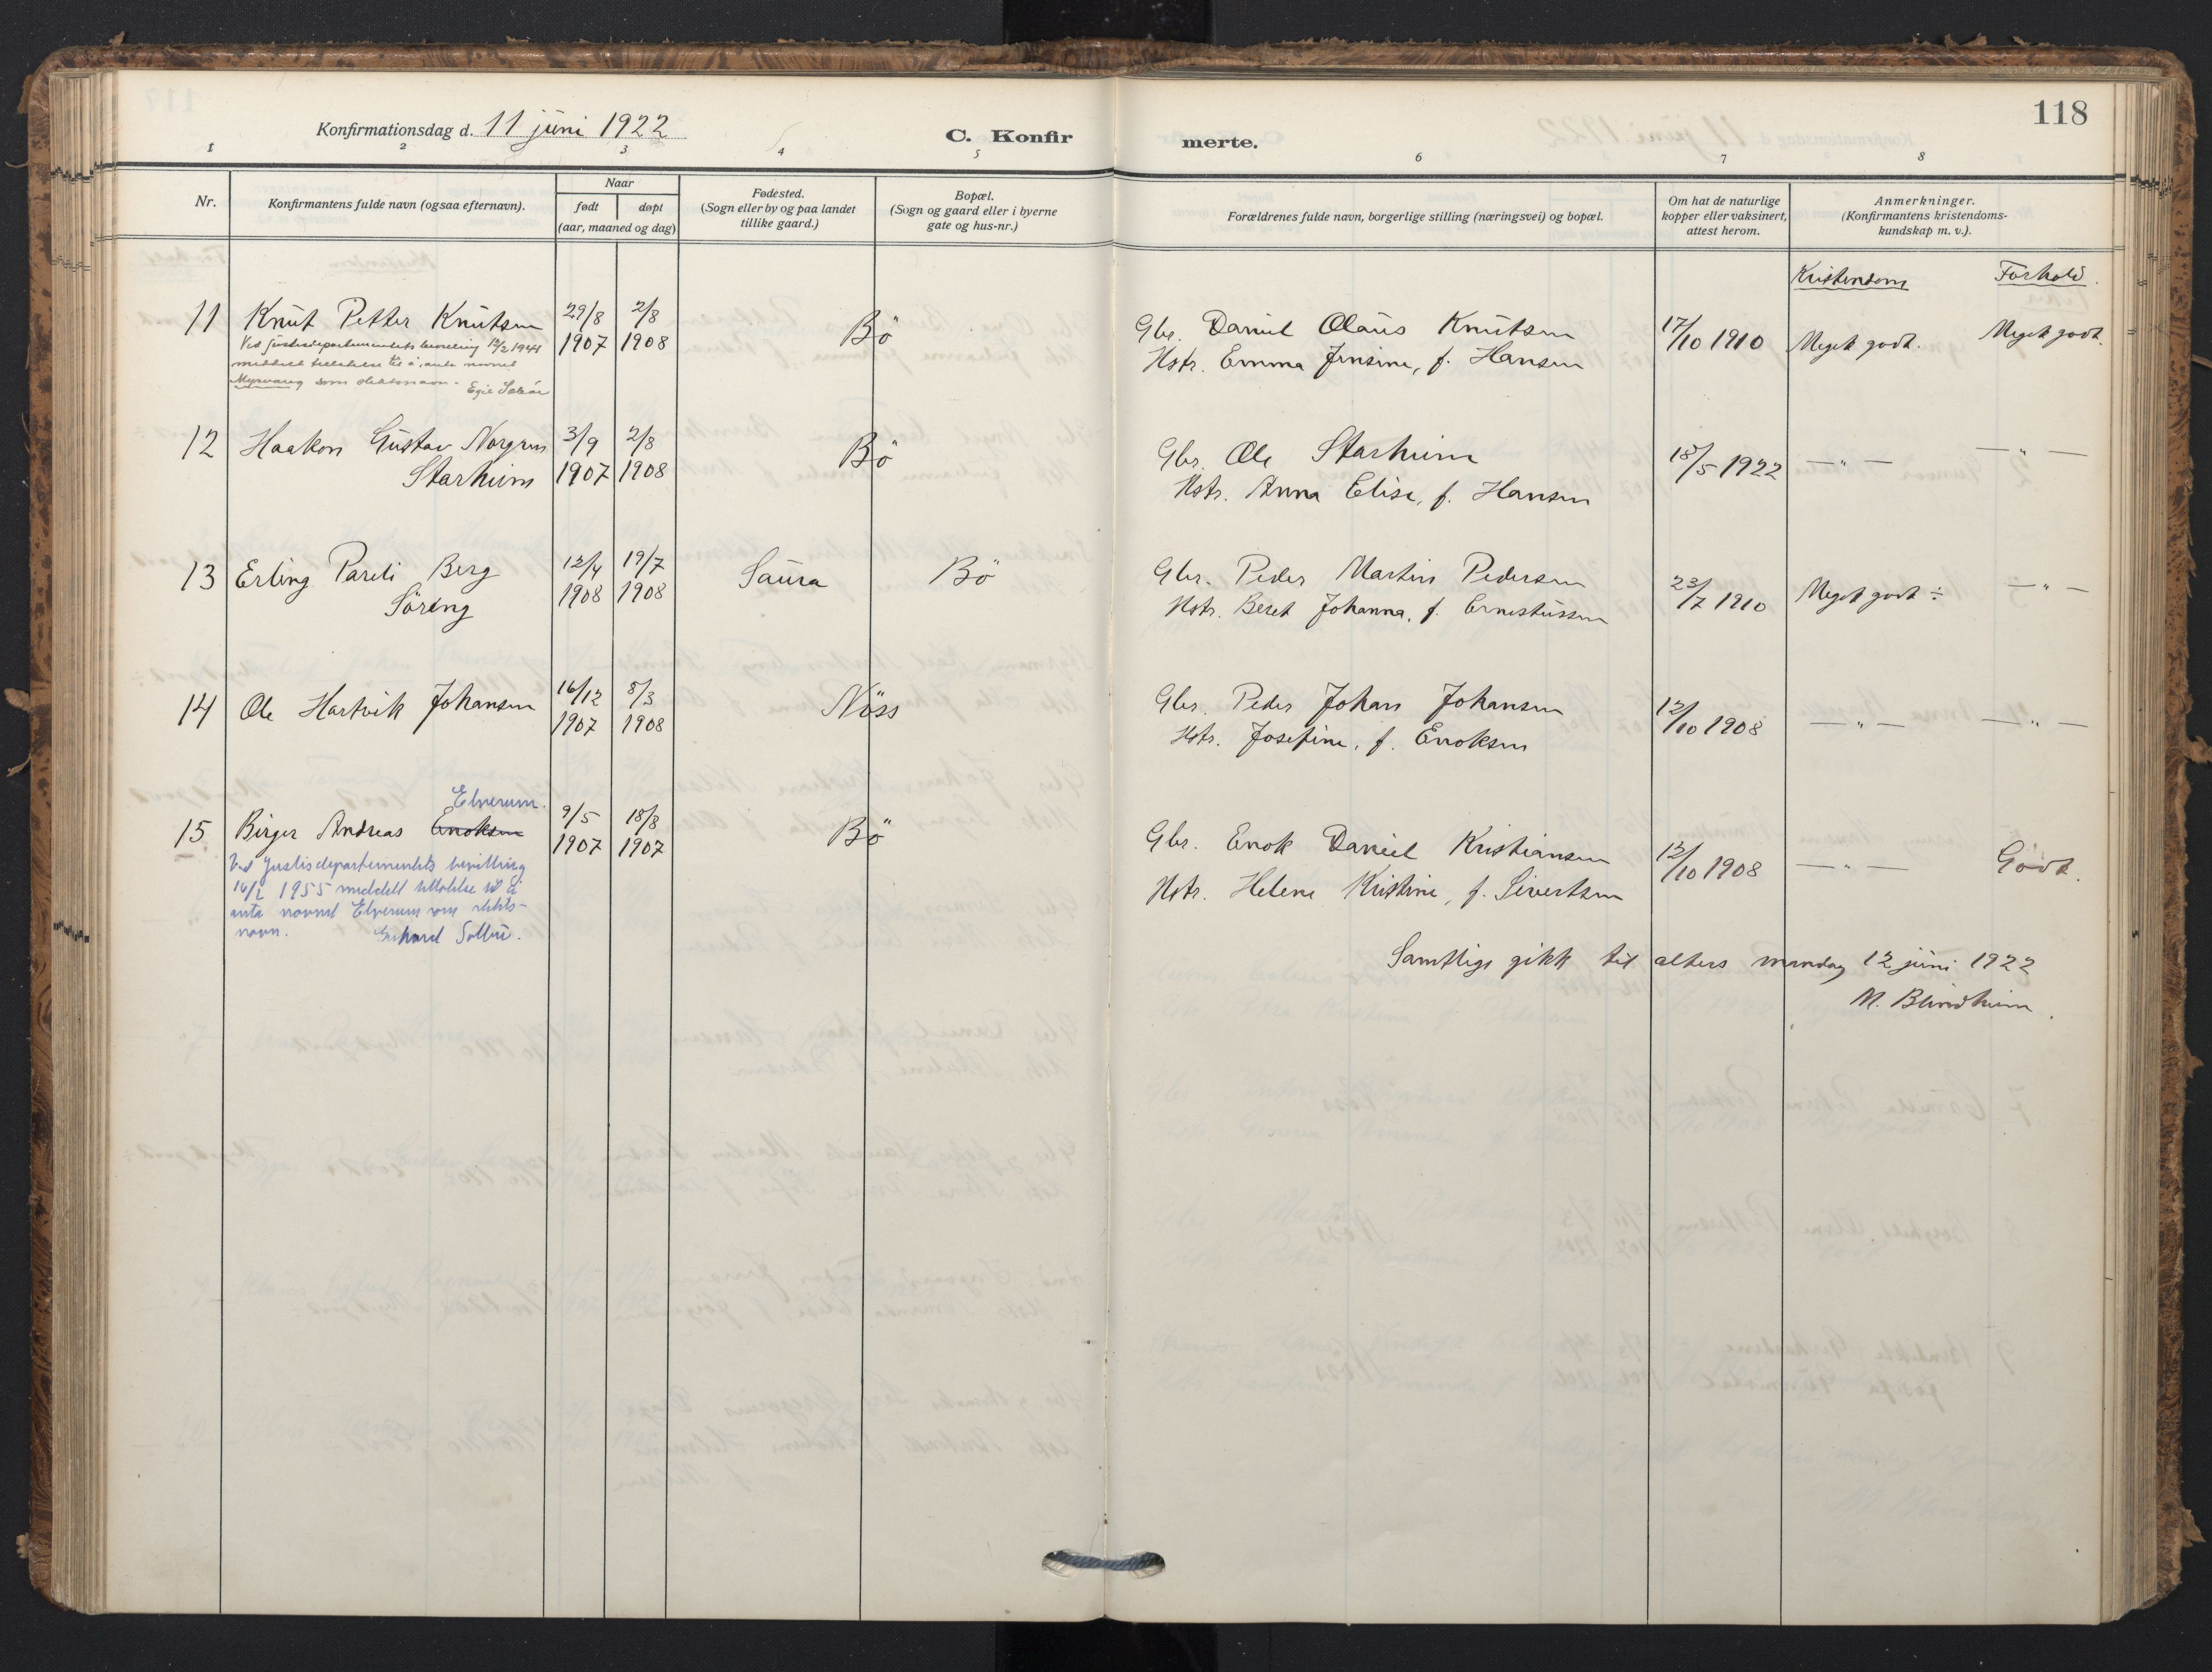 118
Konfirmationsdag d. 11 juni 1922
C. Konfirmerte.
1 2 3 4 5 6 7 8
Nr.
Konfirmantens fulde navn (ogsaa efternavn).
Naar
født døpt
(aar, maaned og dag)
Fødested.
(Sogn eller by og paa landet
tillike gaard.)
Bopæl.
(Sogn og gaard eller i byerne
gate og hus-nr.)
Forældrenes fulde navn, borgerlige stilling (næringsvei) og bopæl.
Om hat de naturlige
kopper eller vaksinert,
attest herom.
Anmerkninger.
(Konfirmantens kristendoms-
kundskap m. v.).
Kristendom Forhold.
11 Knut Petter Knutsen 29/8 2/8 Bö Gbr. Daniel Olaus Knutsen 17/10 1910 Meget godt. Meget godt.
1907 1908 Hstr. Emma Jensine, f. Hansen
Ved justisdepartementets bevilling 12/2 1941
meddelt tillatelse til å anta navnet
Myrvang som slektsnavn.
12 Haakon Gustav Norgren 3/9 2/8 Bö Gbr. Ole Starheim 18/5 1922 — " — — " —
Starheim 1907 1908 Hstr. Anna Elise, f. Hansen
13 Erling Pareli Berg 12/4 19/7 Saura Bö Gbr. Peder Martin Pedersen 23/7 1910 Meget godt ÷ — " —
Söreng 1908 1908 Hstr. Beret Johanna, f. Ernestussen
14 Ole Hartvik Johansen 16/12 8/3 Nöss Gbr. Peder Johan Johansen 12/10 1908 — " — — " —
1907 1908 Hstr. Josefine, f. Enoksen
Elverum.
15 Birger Andreas Enoksen 9/5 18/8 Bö Gbr. Enok Daniel Kristiansen 12/10 1908 — " — Godt.
1907 1907 Hstr. Helene Kristine, f. Sivertsen
Ved Justisdepartementets bevilling
16/2 1955 meddelt tillatelse til å
anta navnet Elverum som slekts-
navn.
Samtlige gikk til alters mandag 12 juni 1922
M. Blindheim.